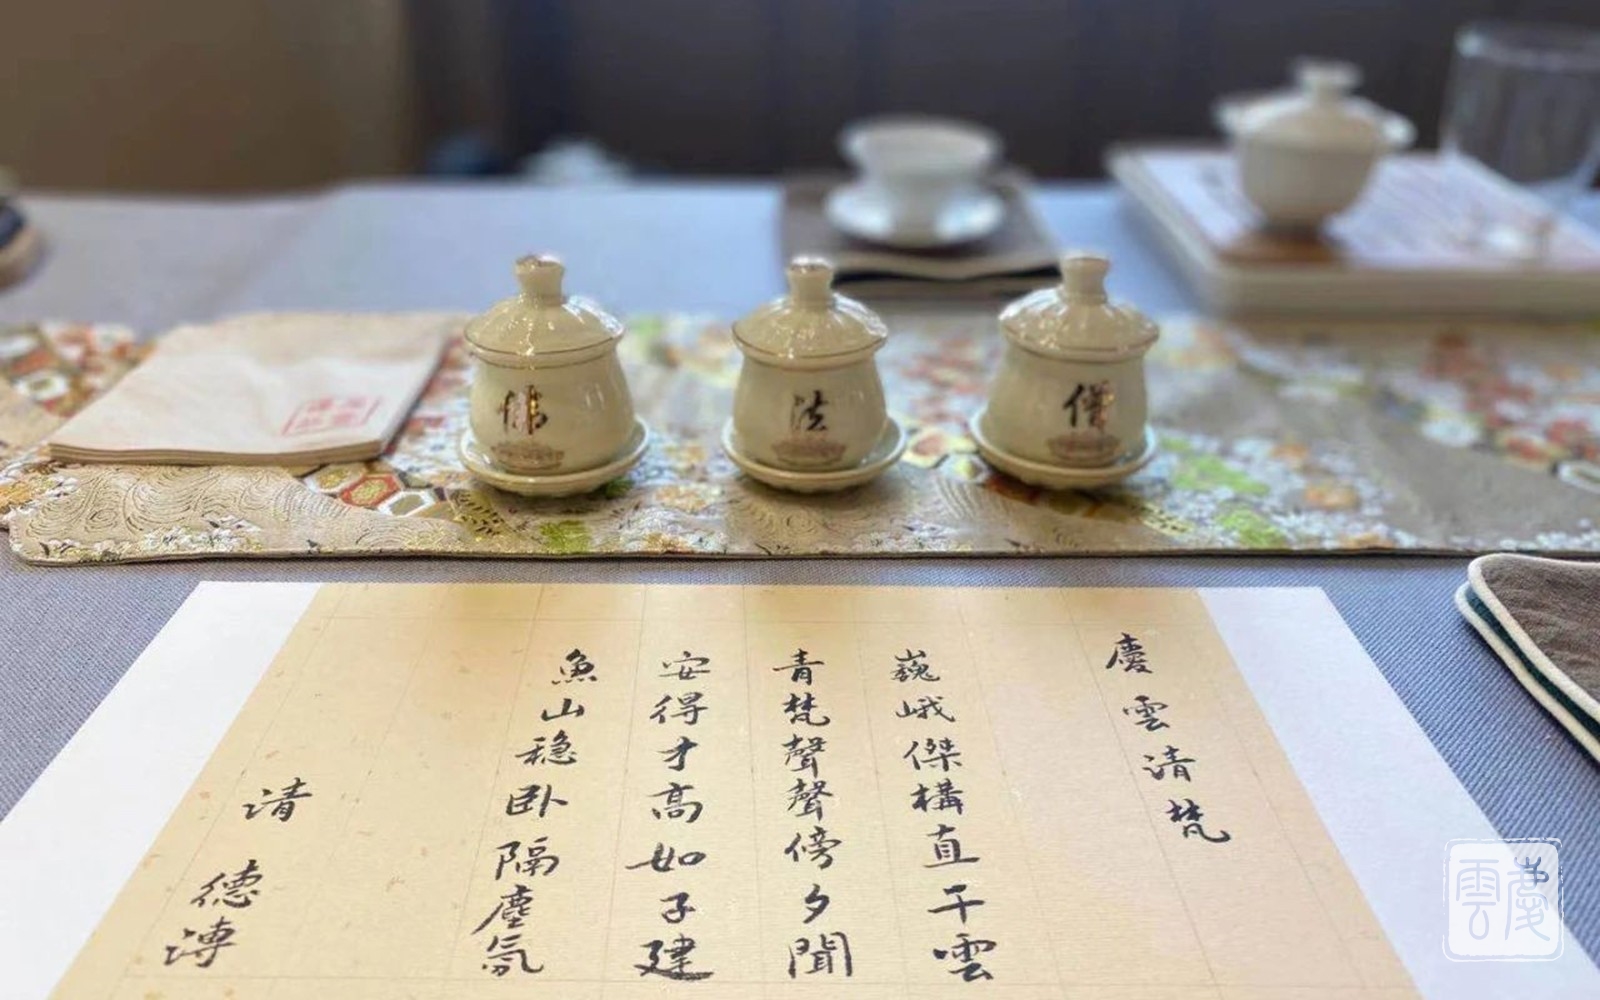 佛
法
僧
慶雲清梵
巍峨傑構直干雲
青梵聲聲傍夕聞
安得才高如子建
魚山穏卧隔塵氛
清
德溥
慶雲